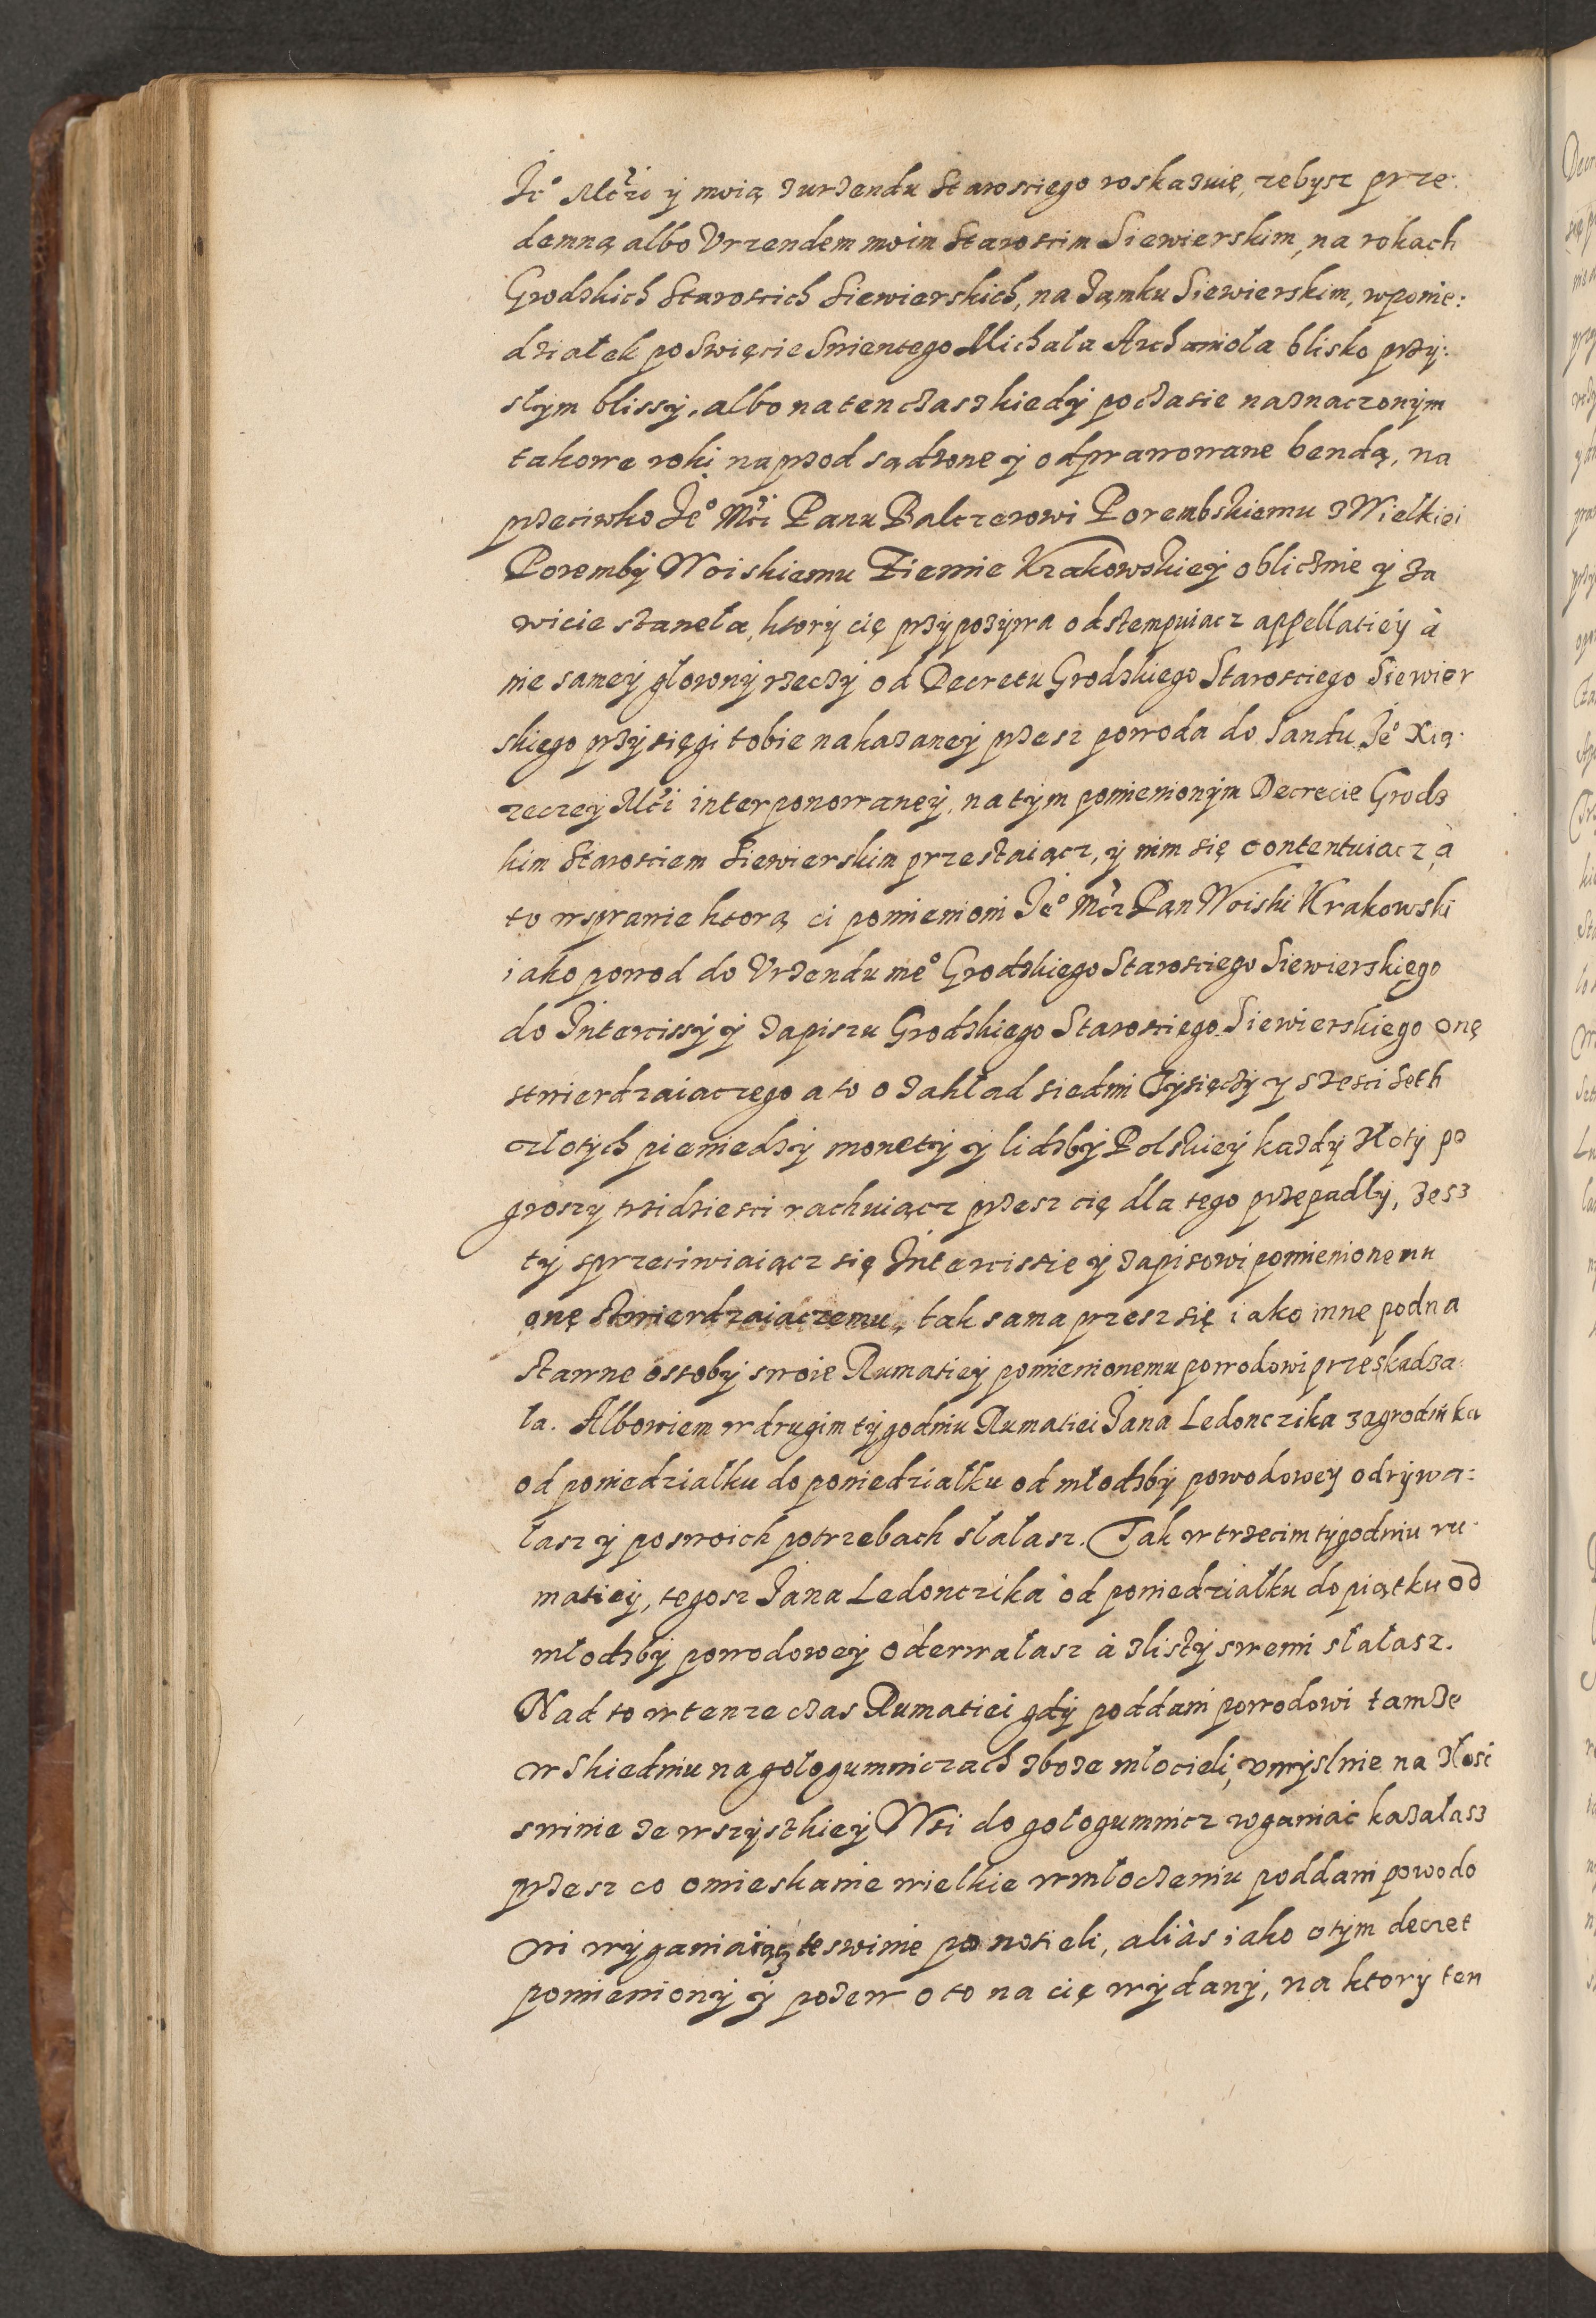 Je° Mczi ÿ moią zurzendu Starosciego roskazuię, zebysz prze:
demną albo Vrzendem moim Staroscim Siewierskim, na rokach
Grodzkich Staroscich Siewierskich, na Zamku Siewierskim, wponie:
działek po Swięcie Swientego Michała Archanioła blisko przÿ:
słym blissÿ, albo na ten czas kiedÿ poczasie naznaczonÿm
takowe roki naprzod sądzone ÿ odprawowane bendą, na
przeciwko Je° Mczi Panu Balczerowi Porembskiemu z Wielkiei
Porembÿ Woiskiemu Ziemie Krakowskieÿ oblicznie ÿ za
wicie stanęła, ktorÿ cię przÿpozÿwa odstempuiacz appellatieÿ à
nie sameÿ głownÿ rzeczÿ od Decretu Grodzkiego Starosciego Siewier
skiego przÿsięgi tobie nakazaneÿ przesz powoda do Sandu Je° Xią:
zeczeÿ Mci interponowaneÿ, na tÿm pomienionÿm Decrecie Grodz
kim Starosciem Siewierskim przestaiącz, ÿ nim się contentuiacz, a
to wsprawie ktorą ci pomienioni Je° Mcz Pan Woiski Krakowski
iako powod do Vrzendu me° Grodzkiego Starosciego Siewierskiego
do Intercissÿ ÿ zapiszu Grodzkiego Starosciego Siewierskiego onę
stwierdzaiaczego a to o zakład siedmi Tÿsięczÿ ÿ szesci seth
złotÿch pieniedzÿ monetÿ ÿ lidzbÿ Polskieÿ kazdÿ złotÿ po
groszÿ trzidziesci rachuiącz przesz cię dla tego przepadłÿ, zesz
tÿ sprzeciwiaiącz się Intercissie ÿ zapisowi pomienionemu
onę stwierdzaiaczemu, tak sama przesz się iako inne podna
stawne ossobÿ swoie Rumatieÿ pomienionemu powodowi przeskadza:
ła. Albowiem w drugim tÿgodniu Rumatiei Jana Ledonczika zagrodnika
od poniedziałku do poniedziałku od młodzbÿ powodoweÿ odrÿwa:
łasz ÿ poswoich potrzebach słałasz. Tak w trzecim tÿgodniu ru:
matieÿ, tegosz Jana Ledonczika od poniedziałku do piątku od
młodzbÿ powodoweÿ oderwałasz à zlistÿ swemi słałasz.
Nad to w tenze czas Rumatiei gdÿ poddani powodowi tamze
w Skiedniu na gołogumniczach zboze młocieli, vmÿslnie na złosc
swinie ze wszÿstkieÿ Wsi do gołogumnicz wganiać kazałasz
przesz co omieskanie wielkie w młoczeniu poddani powodo
wi wÿganiaiącz te swinie ponosieli, aliàs iako o tÿm decret
pomienionÿ ÿ pozew o to na cię wÿdanÿ, na ktorÿ ten